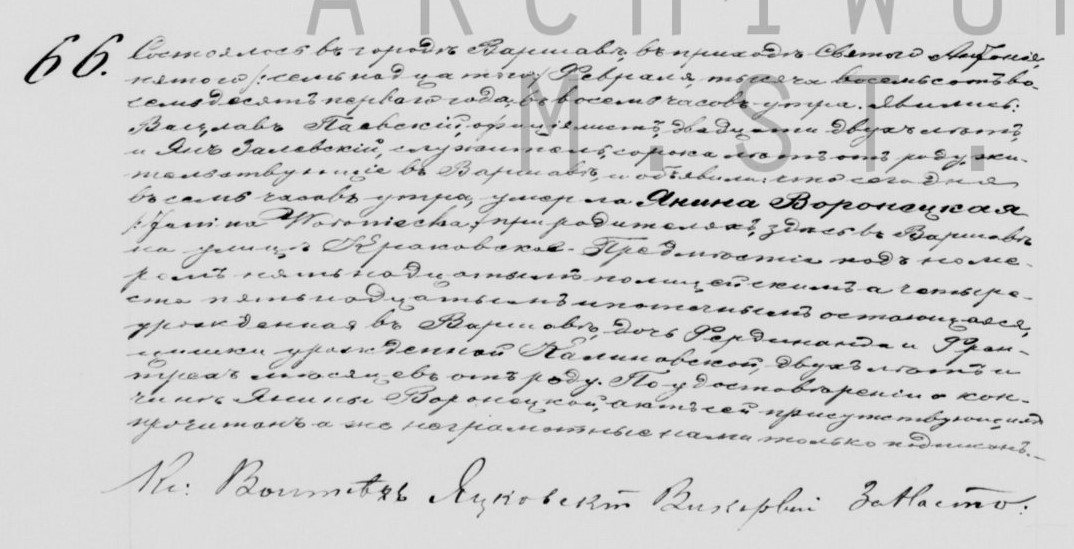 ARCHIWUM
M. ST.
66. Состоялось въ городѣ Варшавѣ, въ приходѣ Святаго Антонія,
пятого /: семьнадцатого:/ Февраля, тысяча восемьсотъ во-
семьдесятъ перваго года, въ восемь часовъ утра. Явились:
Вацлавъ Паевскій, офиціялистъ, двадцати двухъ лѣтъ,
и Янъ Залевскій, служитель, сорока лѣтъ отъ роду, жи-
тельствующіе въ Варшавѣ, и объявили: что сегодня
въ семь часовъ утра, умерла Янина Воронецкая
/: Janina Woroniecka:/ при родителяхъ, здѣсь въ Варшавѣ
на улицѣ Краковское-Предмѣстіе подъ номе-
ромъ пятьнадцатымъ полицейскимъ а четыре-
ста пятьнадцатымъ ипотечнымъ остающаяся,
урожденная въ Варшавѣ, дочь Фердинанда и Фран-
цишки урожденной Калиновской, двухъ лѣтъ и
трехъ мѣсяцевъ отъ роду. По удостовѣреніи о кон-
чинѣ Янины Воронецкой, актъ сей присутствующимъ
прочитанъ а же неграмотные нами только подписанъ.
Кс: Войтѣхъ Яцковскій Викарвій